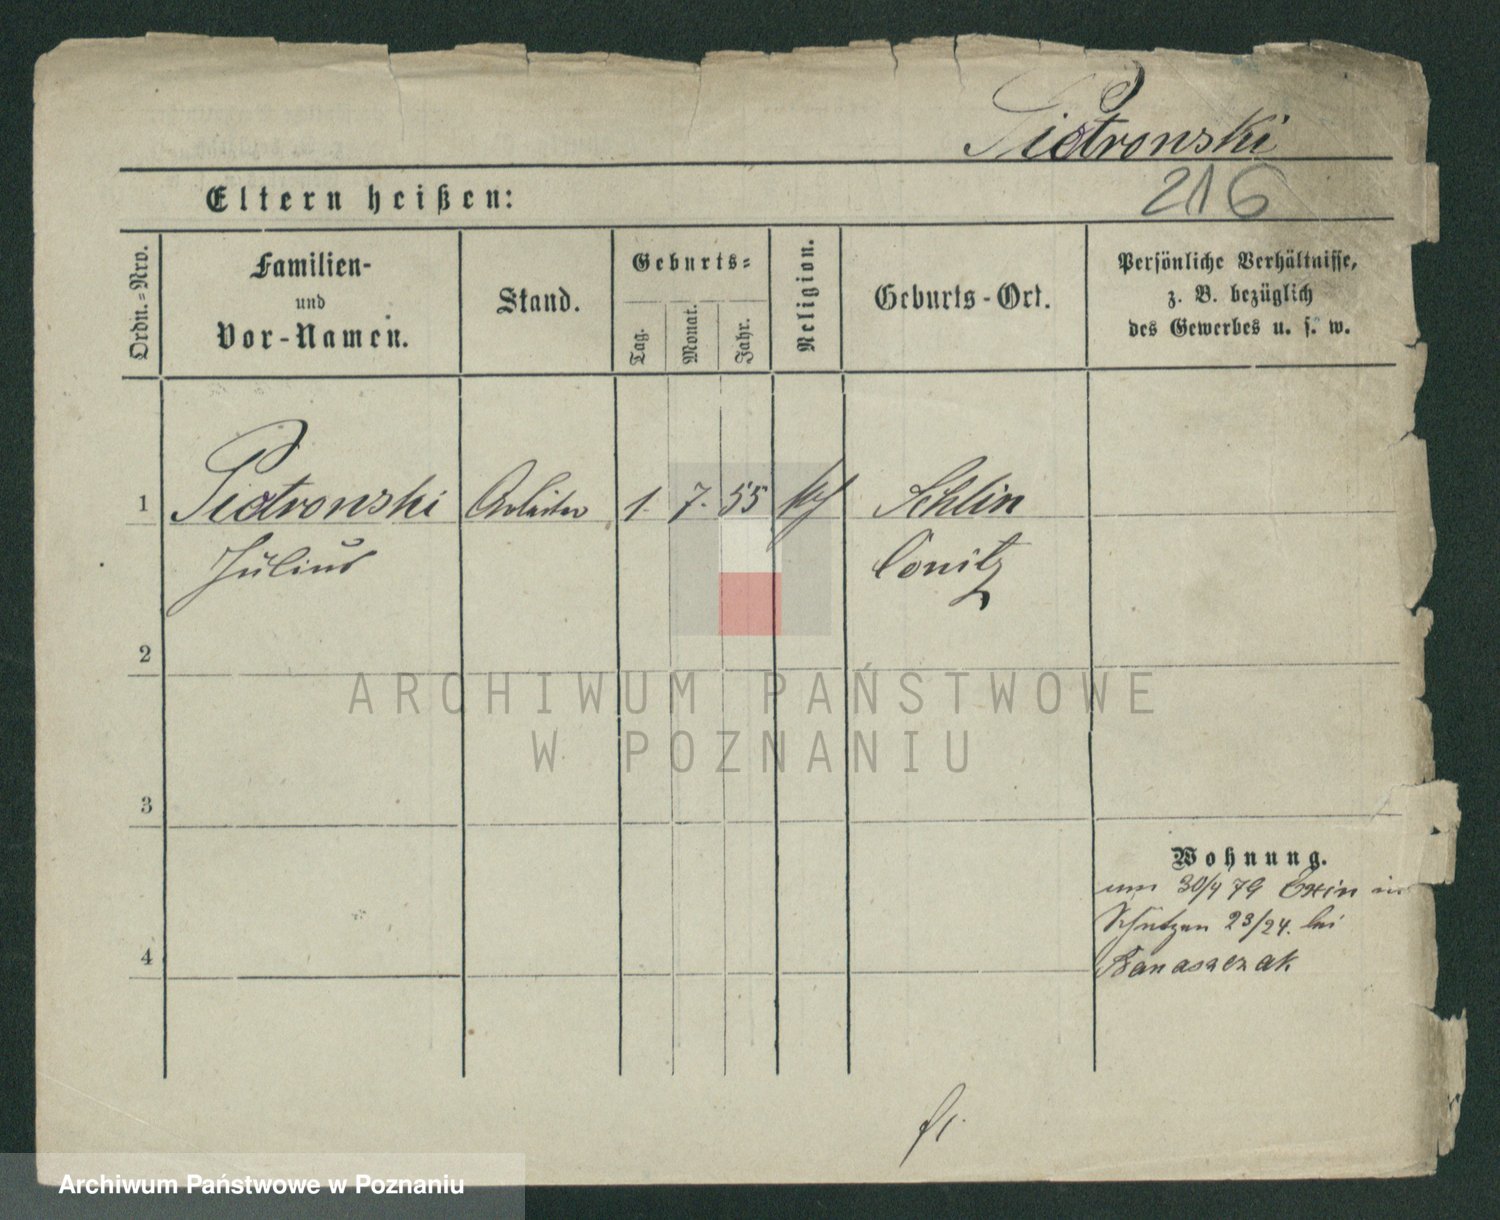 Pietrowski
216
Eltern heißen:
Ordn.-Nro.
Familien-
und
Vor-Namen.
Stand.
Geburts-
Tag.
Monat.
Jahr.
Religion.
Geburts-Ort.
Persönliche Verhältnisse,
z. B. bezüglich
des Gewerbes u. s. w.
1 Pietrowski Arbeiter 1. 7. 55 Schlin
Julius Conitz
2
3
4
Wohnung.
30/4 79 Exin in
Schützen 23/24. bei
Banaszczak
ARCHIWUM PAŃSTWOWE
W POZNANIU
Archiwum Państwowe w Poznaniu